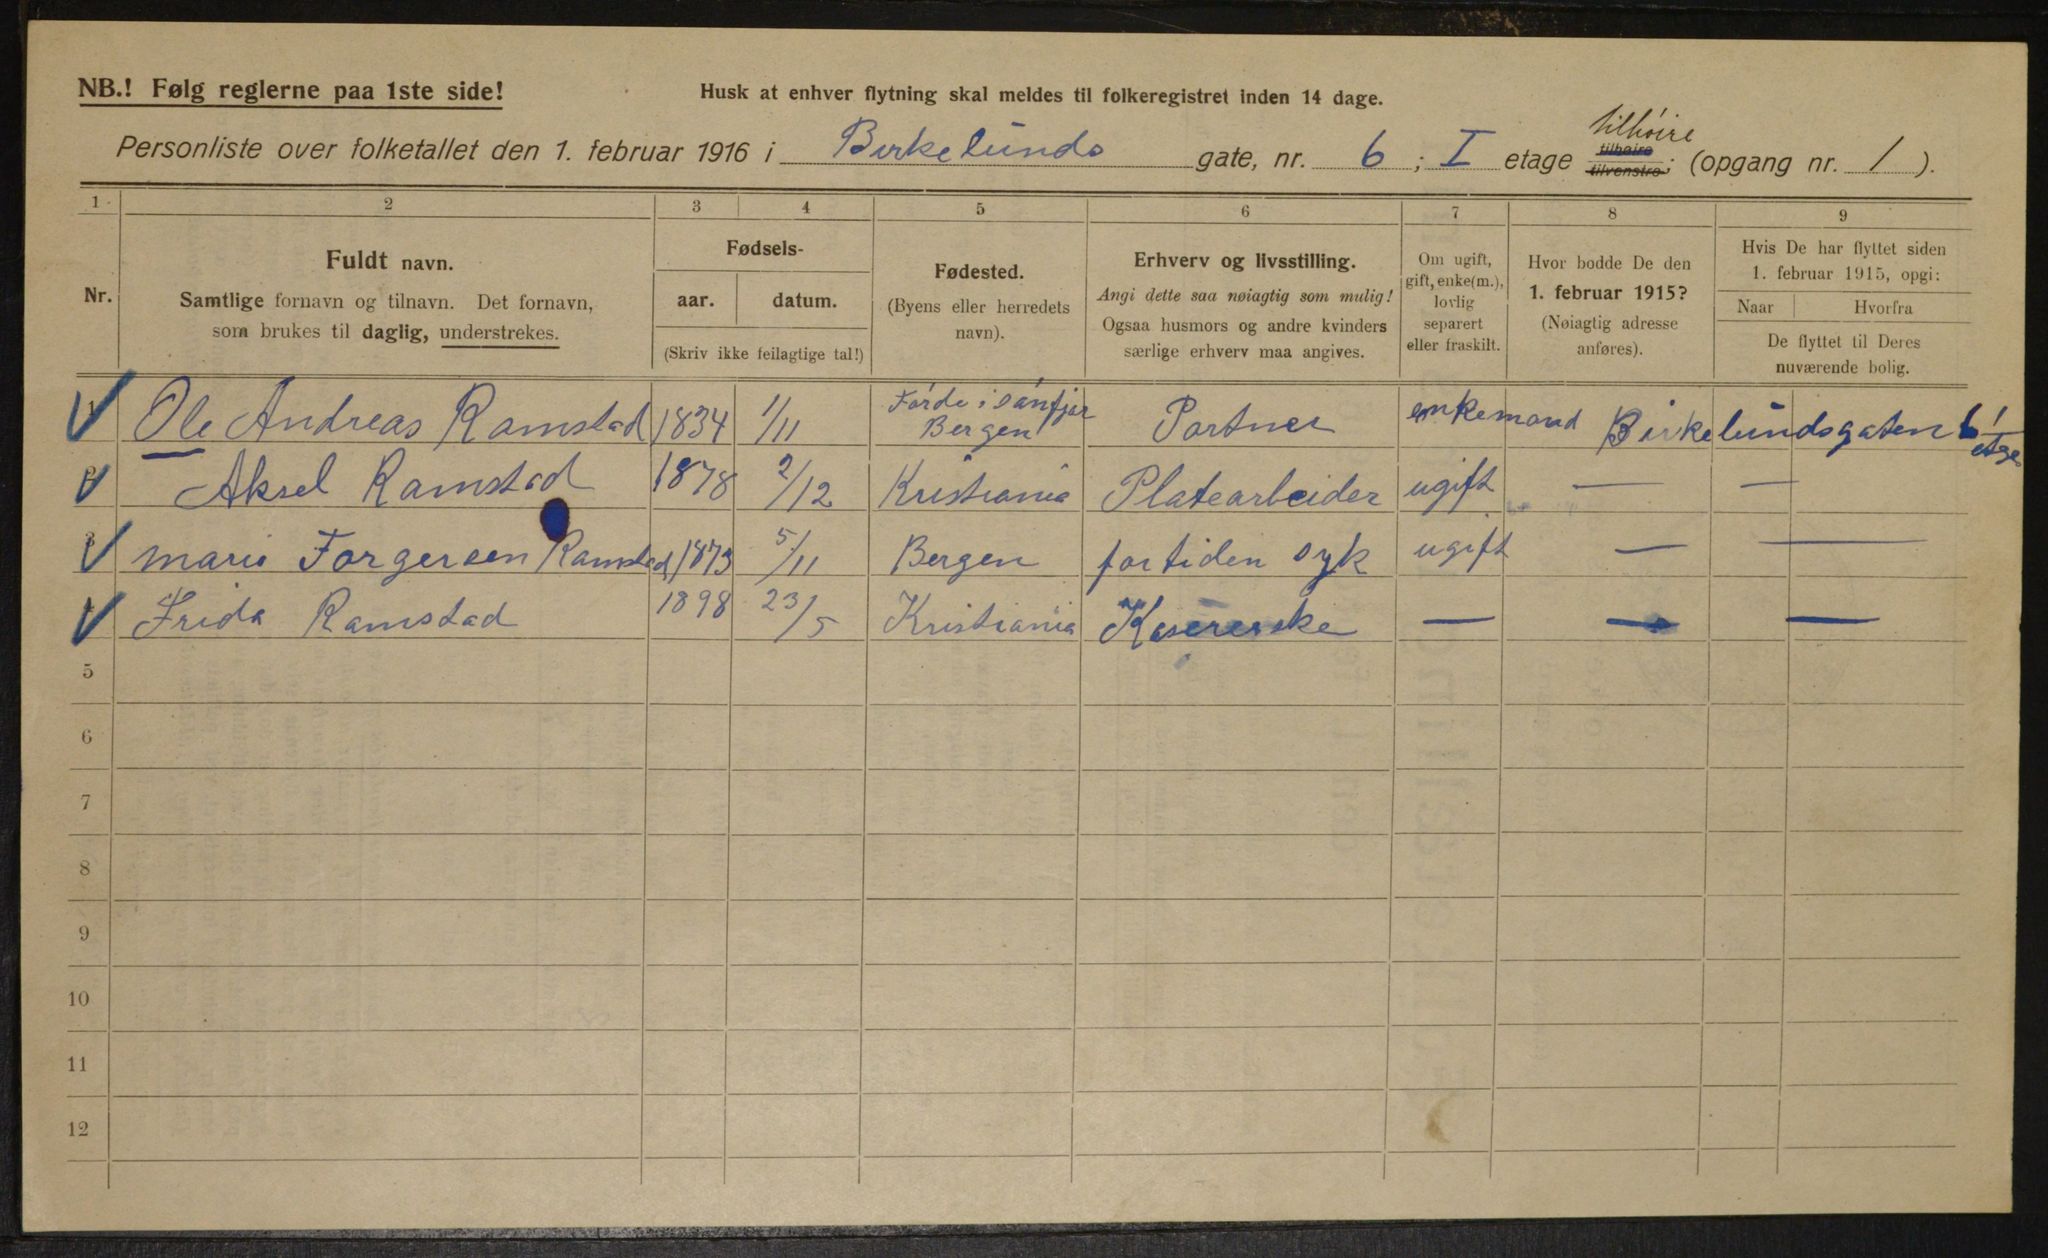 NB.! Følg reglerne paa 1ste side!
Husk at enhver flytning skal meldes til folkeregistret inden 14 dage.
Personliste over folketallet den 1. februar 1916 i Birkelunds gate, nr. 6; I etage tilhøire tilhøire tilvenstre; (opgang nr. 1).
1 2 3 4 5 6 7 8 9
Nr.
Fuldt navn.
Samtlige fornavn og tilnavn. Det fornavn,
som brukes til daglig, understrekes.
Fødsels-
aar. datum.
(Skriv ikke feilagtige tal!)
Fødested.
(Byens eller herredets
navn).
Erhverv og livsstilling.
Angi dette saa nøiagtig som mulig!
Ogsaa husmors og andre kvinders
særlige erhverv maa angives.
Om ugift,
gift, enke(m.),
lovlig
separert
eller fraskilt.
Hvor bodde De den
1. februar 1915?
(Nøiagtig adresse
anføres).
Hvis De har flyttet siden
1. februar 1915, opgi:
Naar Hvorfra
De flyttet til Deres
nuværende bolig.
1 Ole Andreas Ramstad 1834 1/11 Førde i sønfjor Bergen Portner enkemand Birkelundsgaten 6 1 etage
2 Aksel Ramstad 1878 2/12 Kristiania Platearbeider ugift — —
3 Marie Torgersen Ramstad 1873 5/11 Bergen fortiden syk ugift — —
4 Frida Ramstad 1898 23/5 Kristiania Kasererske — — —
5
6
7
8
9
10
11
12